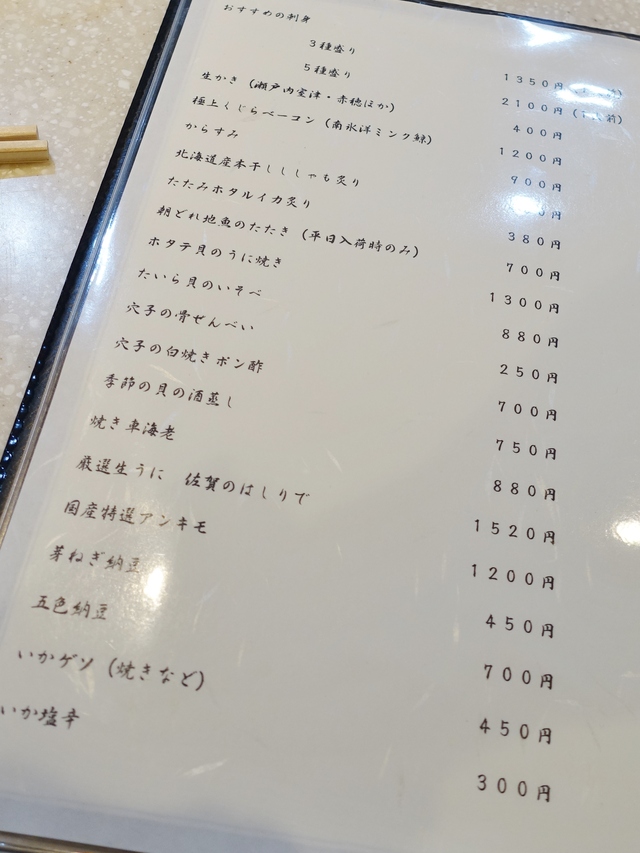 おすすめの刺身
３種盛り １３５０円
５種盛り ２１００円
生かき（瀬戸内室津・赤穂ほか） ４００円
極上くじらベーコン（南氷洋ミンク鯨） １２００円
からすみ ９００円
北海道産本干しししゃも炙り 円
たたみホタルイカ炙り ３８０円
朝どれ地魚のたたき（平日入荷時のみ） ７００円
ホタテ貝のうに焼き １３００円
たいら貝のいそべ ８８０円
穴子の骨せんべい ２５０円
穴子の白焼きポン酢 ７００円
季節の貝の酒蒸し ７５０円
焼き車海老 ８８０円
厳選生うに　佐賀のはしりで １５２０円
国産特選アンキモ １２００円
芽ねぎ納豆 ４５０円
五色納豆 ７００円
いかゲソ（焼きなど） ４５０円
いか塩辛 ３００円